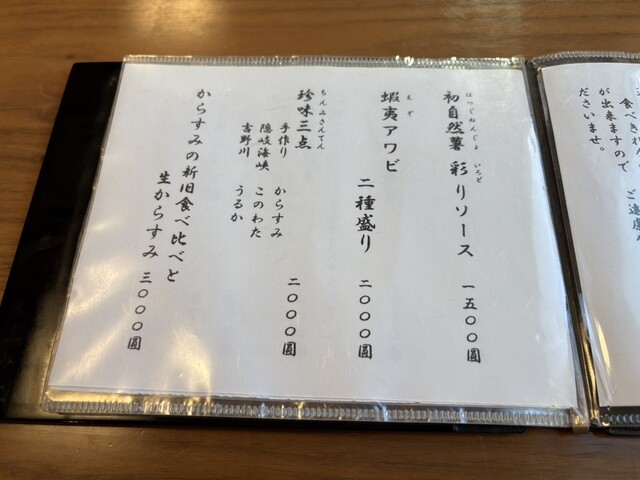 食べきれ
が出来ますので ご遠慮
ださいませ。
はつじねんじょ いろど
初自然薯 彩りソース 一五〇〇圓
えぞ
蝦夷アワビ 二種盛り 二〇〇〇圓
ちんみさんてん
珍味三点 二〇〇〇圓
手作り からすみ
隠岐海峡 このわた
吉野川 うるか
からすみの新旧食べ比べと
生からすみ 三〇〇〇圓